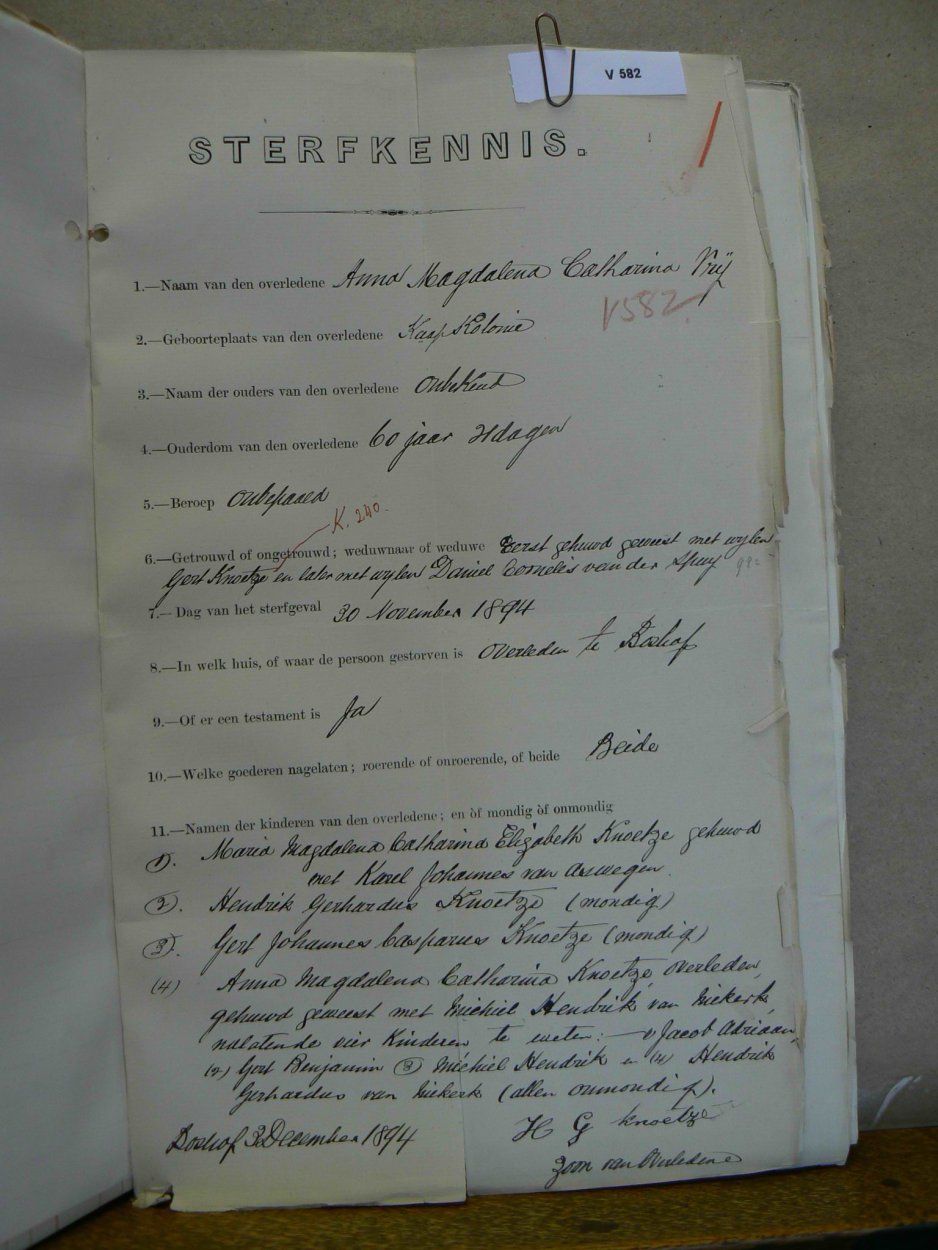 V 582
STERFKENNIS.
1.—Naam van den overledene Anna Magdalena Catharina Vrij
V582
2.—Geboorteplaats van den overledene Kaap Kolonie
3.—Naam der ouders van den overledene Onbekend
4.—Ouderdom van den overledene 60 jaar dagen
5.—Beroep Onbepaald
K. 240.
6.—Getrouwd of ongetrouwd; weduwnaar of weduwe Eerst gehuwd geweest met wylen
Gert Knoetze en later met wylen Daniel Cornelis van der Spuy
7.—Dag van het sterfgeval 30 November 1894
8.—In welk huis, of waar de persoon gestorven is Overleden te Boshof
9.—Of er een testament is Ja
10.—Welke goederen nagelaten; roerende of onroerende, of beide Beide
11.—Namen der kinderen van den overledene; en òf mondig òf onmondig
1). Maria Magdalena Catharina Elizabeth Knoetze gehuwd
met Karel Johannes van Aswegen
2). Hendrik Gerhardus Knoetze (mondig)
3). Gert Johannes Casparus Knoetze (mondig)
(4) Anna Magdalena Catharina Knoetze, overleden,
gehuwd geweest met Michiel Hendrik van Niekerk,
nalatende vier Kinderen te weten:— 1) Jacob Adriaan,
(2) Gert Benjamin (3) Michiel Hendrik en (4) Hendrik
Gerhardus van Niekerk (allen onmondig).
Boshof 3 December 1894
H G Knoetze
Zoon van Overledene